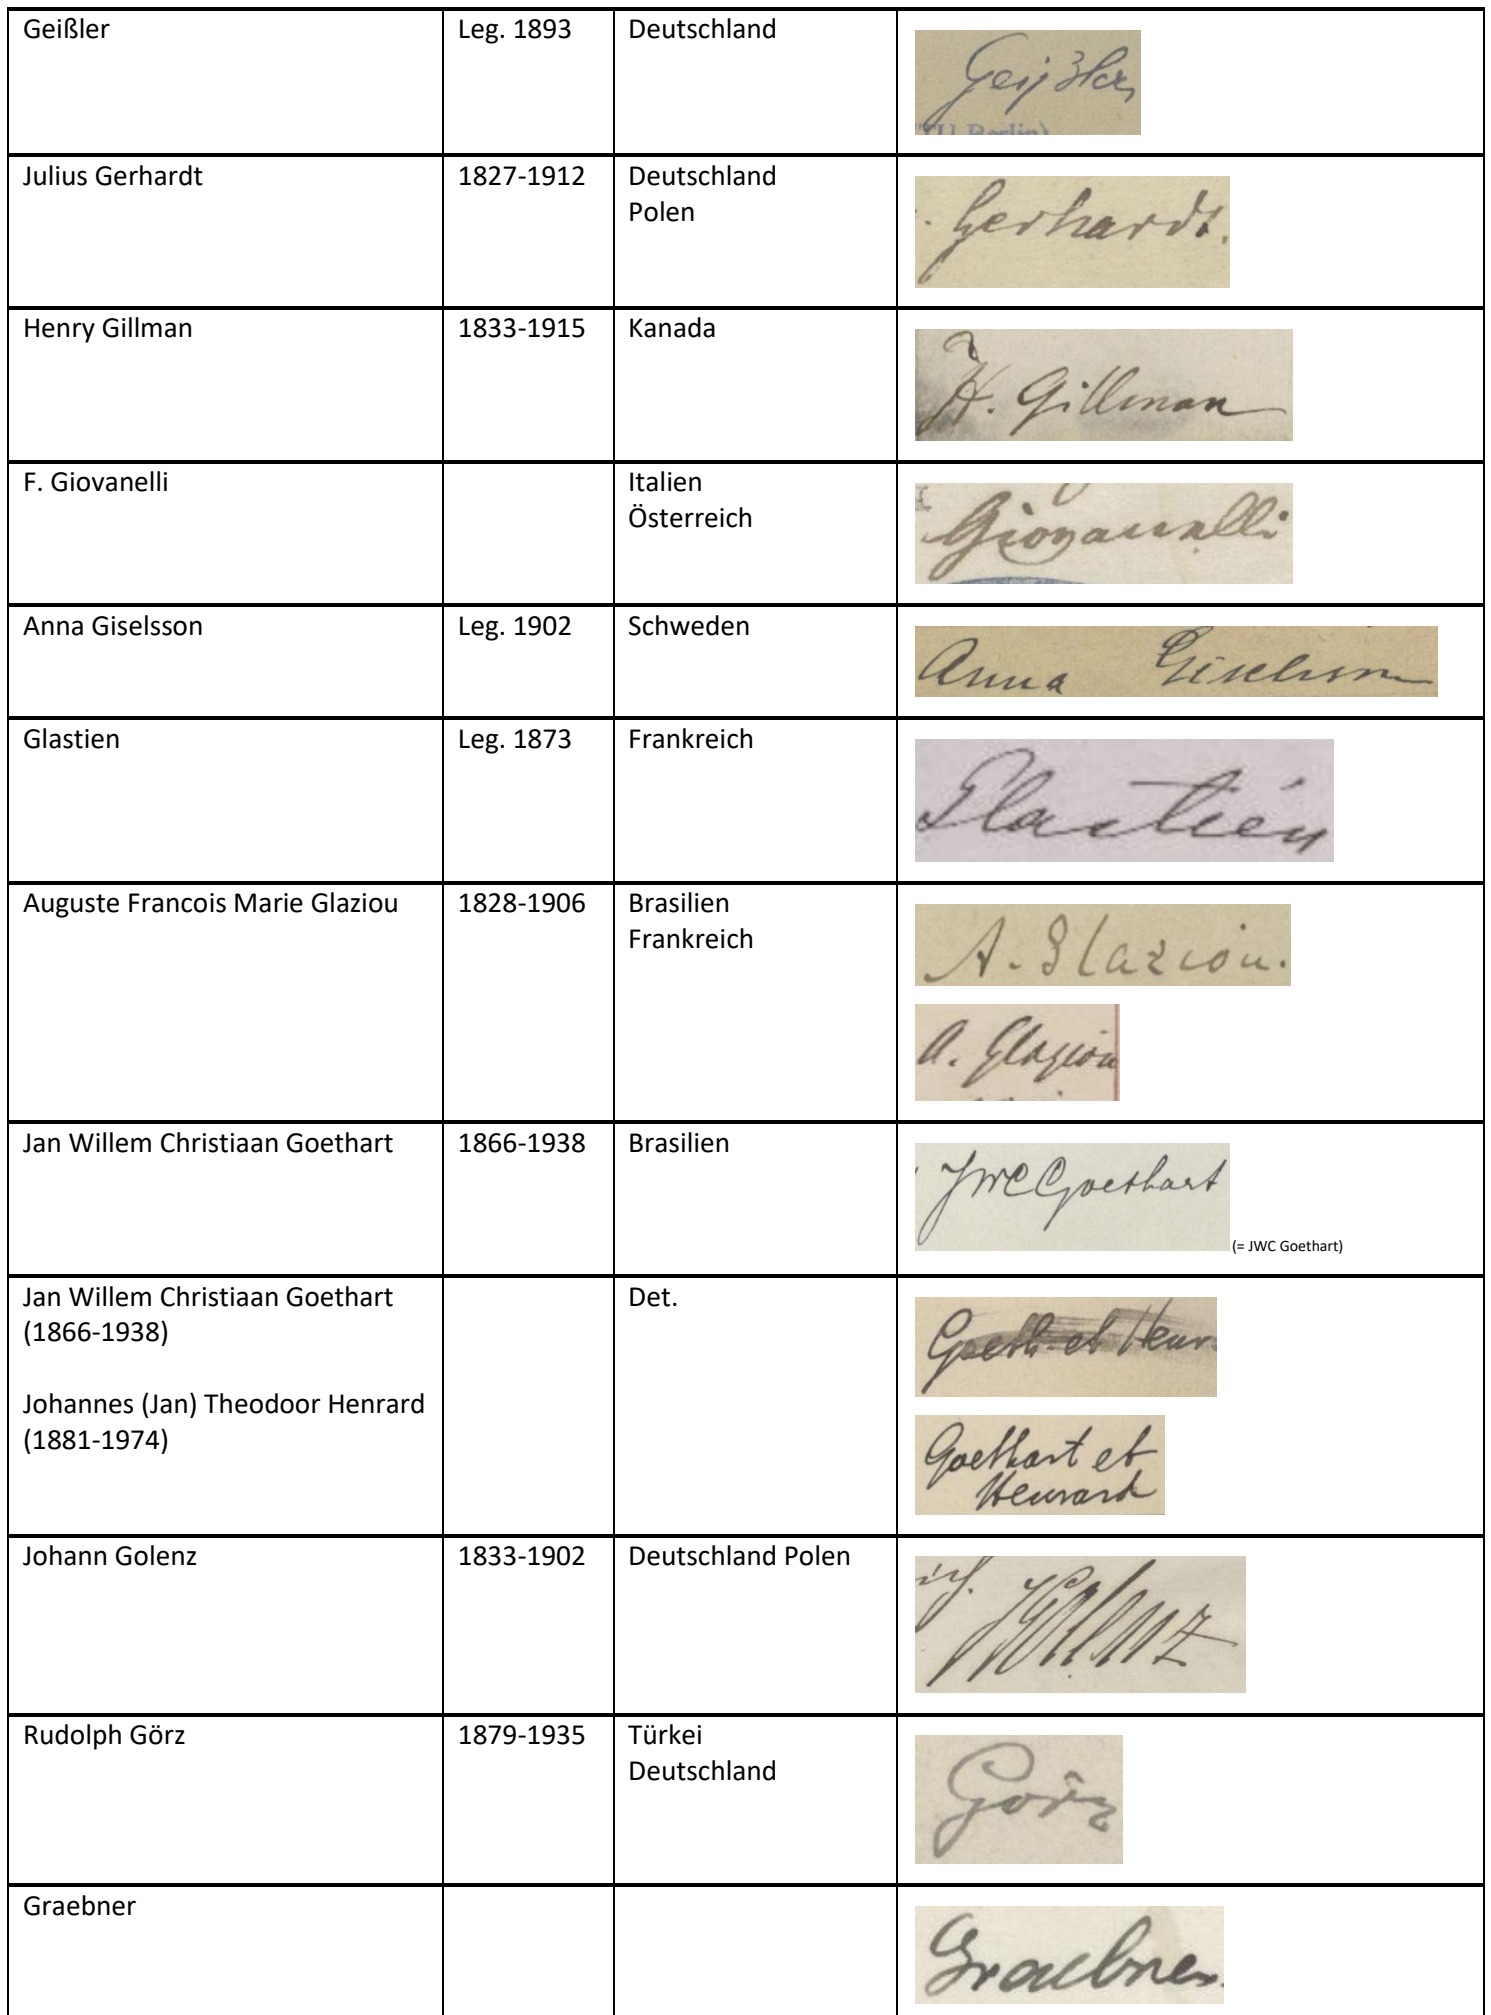 Geißler Leg. 1893 Deutschland Geißler
TU Berlin)
Julius Gerhardt 1827-1912 Deutschland Gerhardt.
Polen
Henry Gillman 1833-1915 Kanada H. Gillman
F. Giovanelli Italien Giovanelli
Österreich
Anna Giselsson Leg. 1902 Schweden Anna Giselsson
Glastien Leg. 1873 Frankreich Glastien
Auguste Francois Marie Glaziou 1828-1906 Brasilien A. Glaziou.
Frankreich
A. Glaziou
Jan Willem Christiaan Goethart 1866-1938 Brasilien JWC Goethart
(= JWC Goethart)
Jan Willem Christiaan Goethart Det. Goeth. et Henr.
(1866-1938)
Johannes (Jan) Theodoor Henrard Goethart et
(1881-1974) Henrard
Johann Golenz 1833-1902 Deutschland Polen Golenz
Rudolph Görz 1879-1935 Türkei Görz
Deutschland
Graebner Graebner.